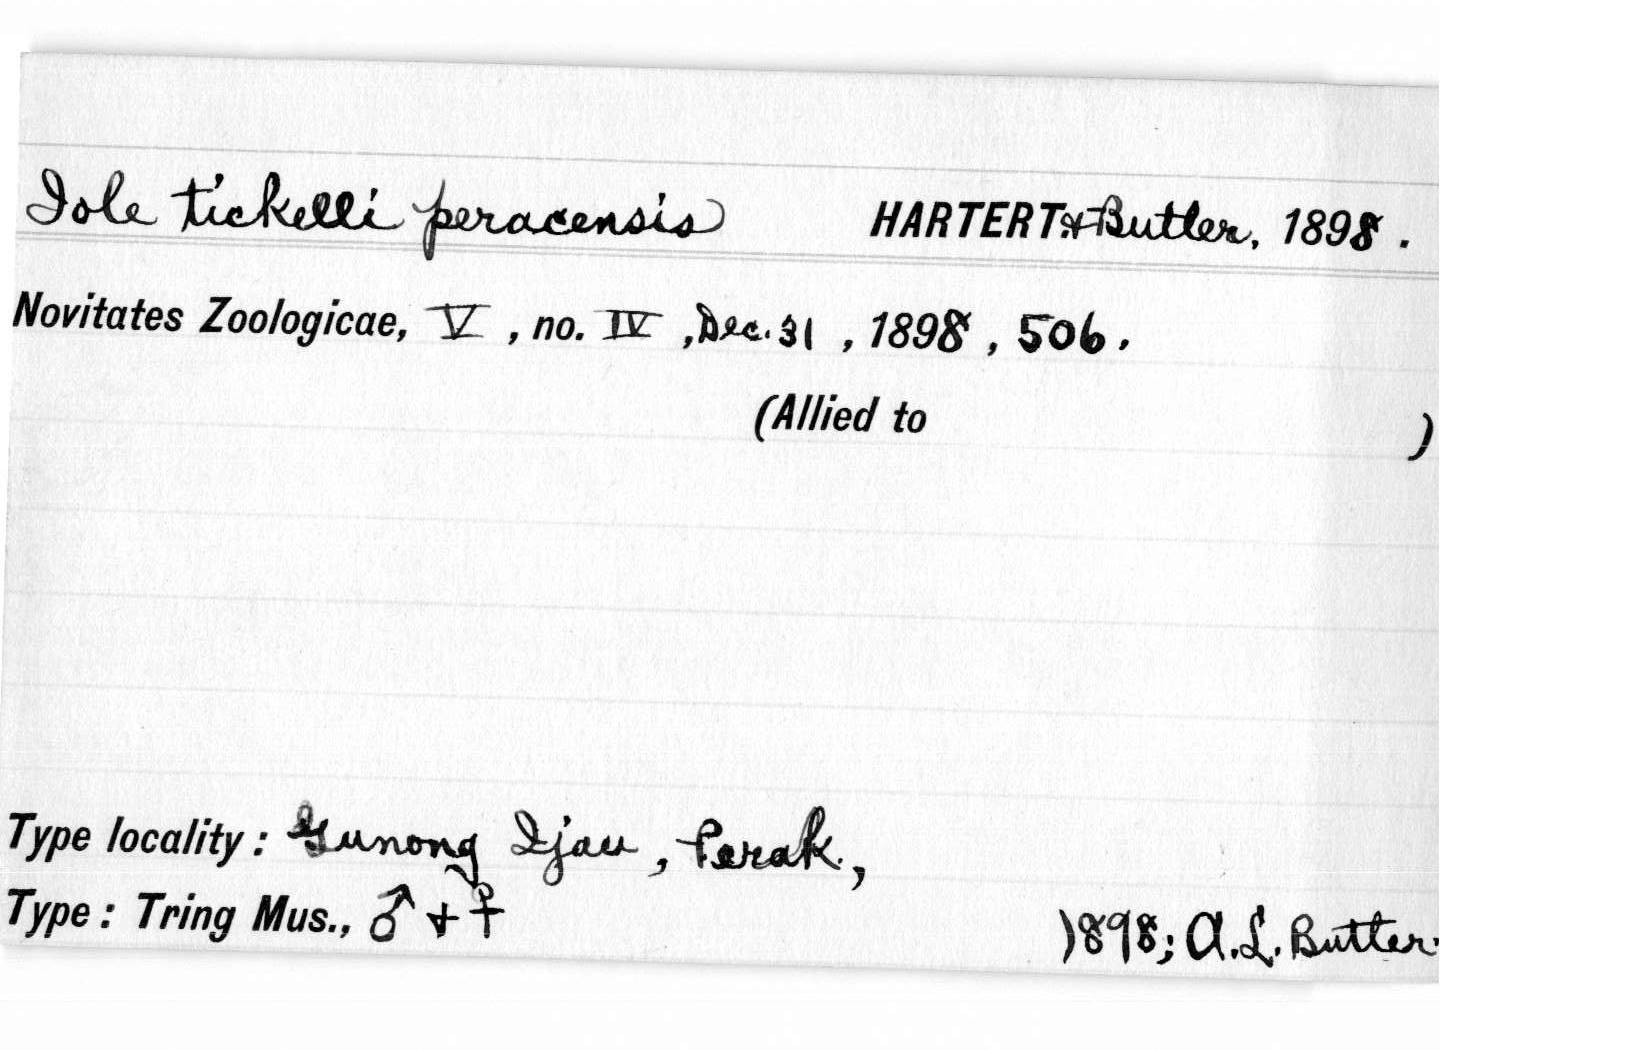 Iole tickelli peracensis HARTERT & Butler, 1898.
Novitates Zoologicae, V, no. IV, Dec. 31, 1898, 506.
(Allied to )
Type locality: Gunong Ijau, Perak,
Type: Tring Mus., ♂ + ♀ 1898; A.L. Butler.